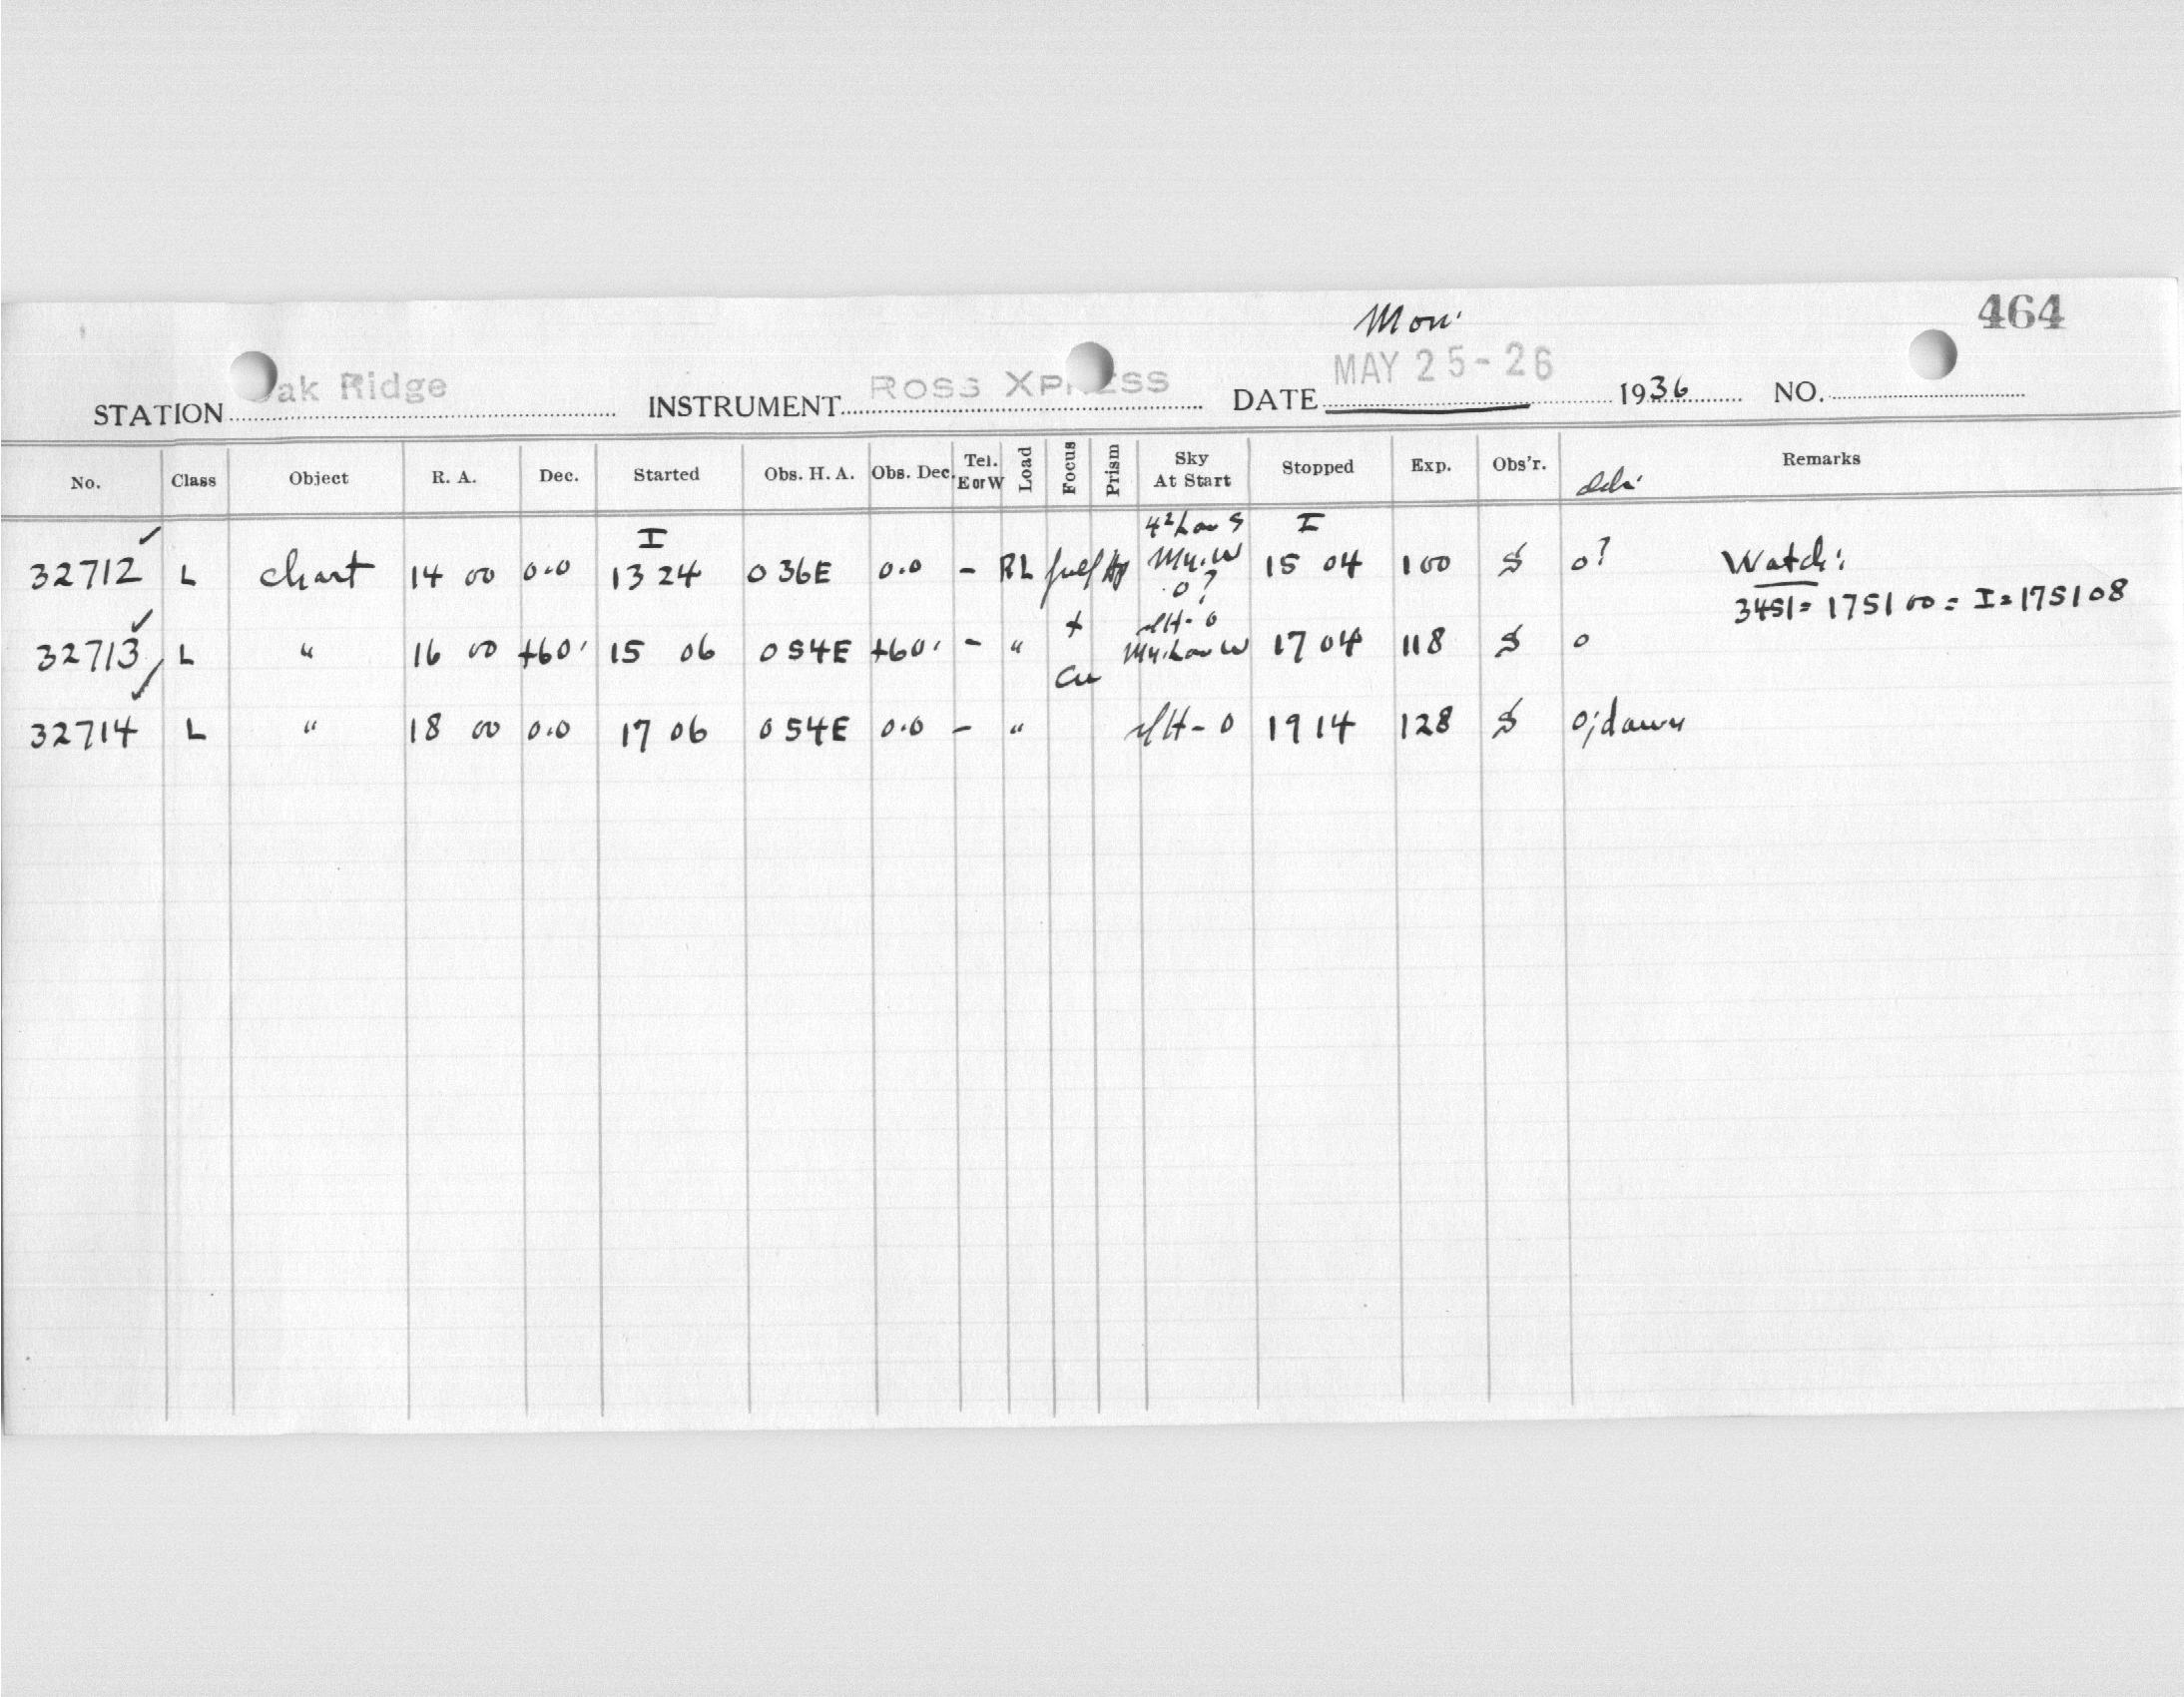 464
Mon.
STATION ak Ridge INSTRUMENT ROSS XPRESS DATE MAY 25-26 1936 NO.
No. Class Object R. A. Dec. Started Obs. H. A. Obs. Dec. Tel. E or W Load Focus Prism Sky At Start Stopped Exp. Obs'r. Remarks
I I
32712 ✓ L chart 14 00 0.0 13 24 0 36E 0.0 - RL o? 15 04 100 S o? Watch:
3451 = 175100 = I = 175108
32713 ✓ L " 16 00 +60. 15 06 0 54E +60. - " 17 04 118 S o
32714 ✓ L " 18 00 0.0 17 06 0 54E 0.0 - " 19 14 128 S o; dawn